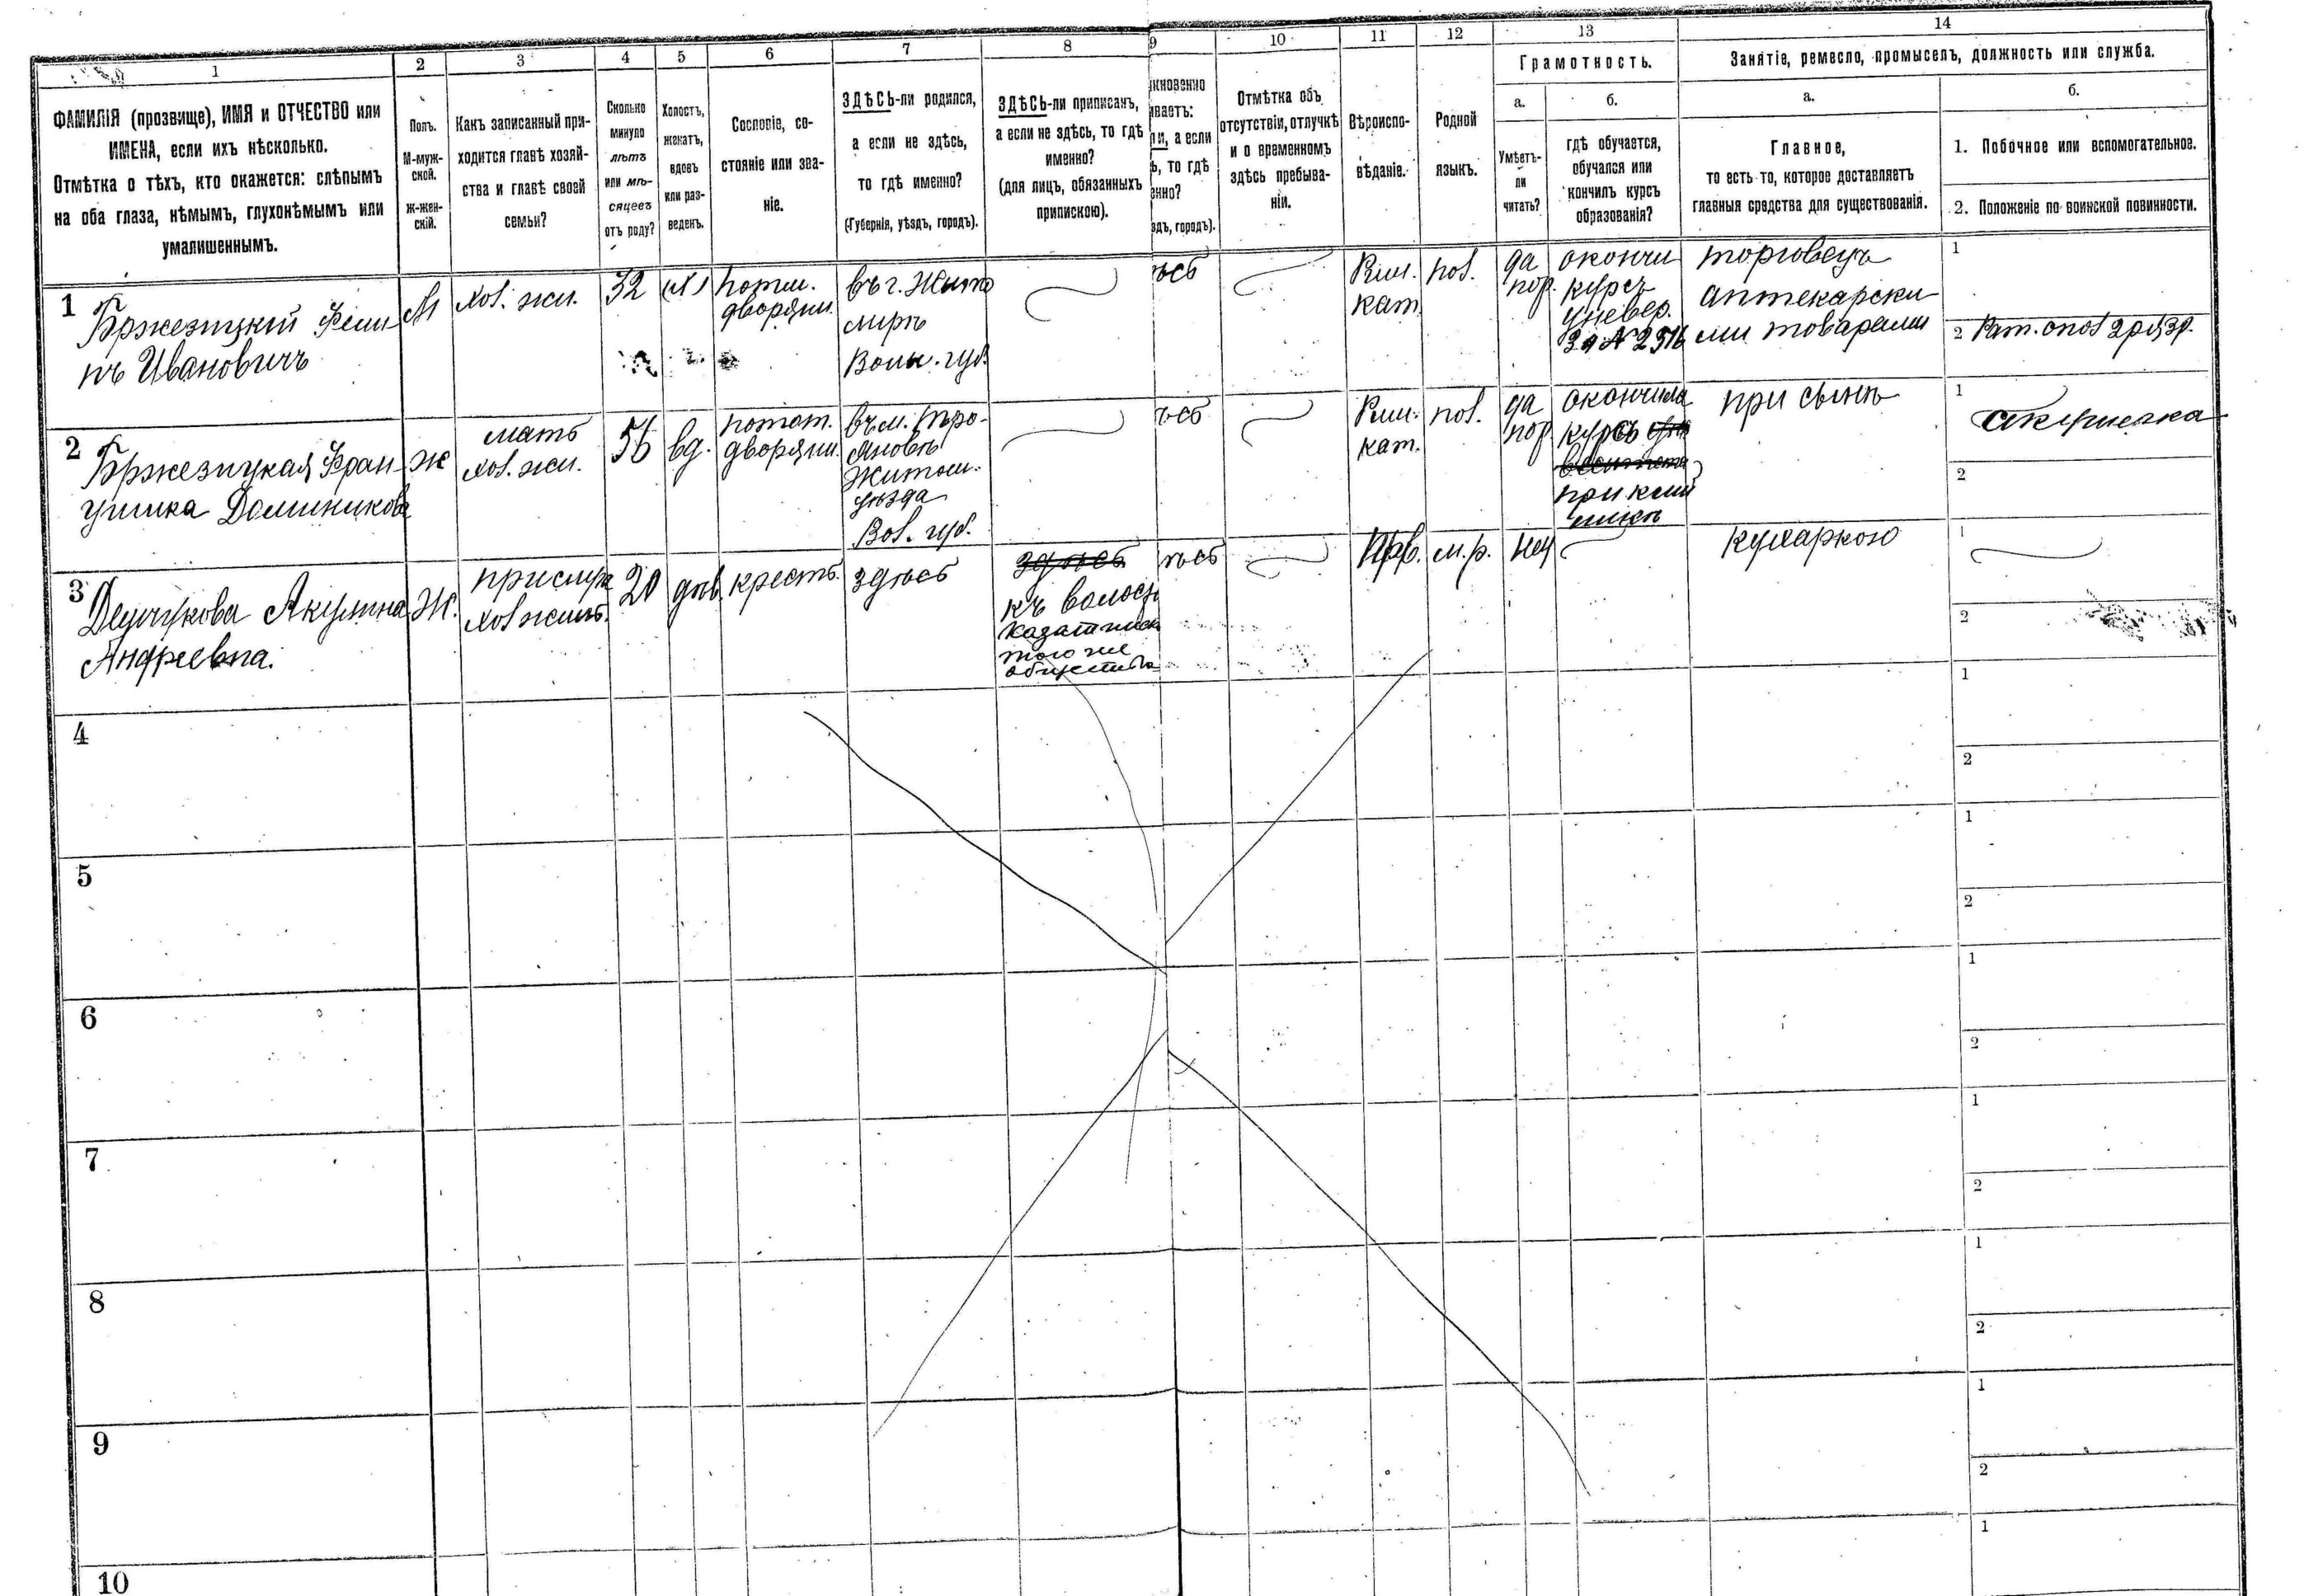 1 2 3 4 5 6 7 8 9 10 11 12 13 14
ФАМИЛІЯ (прозвище), ИМЯ и ОТЧЕСТВО или
ИМЕНА, если ихъ нѣсколько.
Отмѣтка о тѣхъ, кто окажется: слѣпымъ
на оба глаза, нѣмымъ, глухонѣмымъ или
умалишеннымъ.
Полъ.
М-муж-
ской.
Ж-жен-
скій.
Какъ записанный при-
ходится главѣ хозяй-
ства и главѣ своей
семьи?
Сколько
минуло
лѣтъ
или мѣ-
сяцевъ
отъ роду?
Холостъ,
женатъ,
вдовъ
или раз-
веденъ.
Сословіе, со-
стояніе или зва-
ніе.
ЗДѢСЬ-ли родился,
а если не здѣсь,
то гдѣ именно?
(Губернія, уѣздъ, городъ).
ЗДѢСЬ-ли приписанъ,
а если не здѣсь, то гдѣ
именно?
(для лицъ, обязанныхъ
припискою).
кновенно
иваетъ:
ли, а если
ь, то гдѣ
енно?
здъ, городъ).
Отмѣтка объ
отсутствіи, отлучкѣ
и о временномъ
здѣсь пребыва-
ніи.
Вѣроиспо-
вѣданіе.
Родной
языкъ.
Грамотность.
а.
Умѣетъ-
ли
читать?
б.
гдѣ обучается,
обучался или
кончилъ курсъ
образованія?
Занятіе, ремесло, промыселъ, должность или служба.
а.
Главное,
то есть то, которое доставляетъ
главныя средства для существованія.
б.
1. Побочное или вспомогательное.
2. Положеніе по воинской повинности.
1
Бржезицкій Фели-
пъ Ивановичъ
М
хоз. жи.
32
потом.
дворяни.
въ г. Жито
мирѣ
Волы. губ.
ѣсь
Рим.
кат.
пол.
да
пор.
окончи
курсъ
универ.
торговецъ
аптекарски
ми товарами
1
2
2
Бржезицкая Фран-
цишка Доминикова
ж
мать
хоз. жи.
56
вд.
потом.
дворяни.
въ м. Тро-
яновѣ
Житом.
уѣзда
Вол. губ.
ѣсь
Рим.
кат.
пол.
да
пор.
окончила
курсъ
при кли
никѣ
при сынѣ
1
акушерка
2
3
Демчукова Акулина
Андреевна.
Ж.
прислуга
хоз жит.
20
дѣв.
кресть.
здѣсь
здѣсь
къ волости
казатинск
того же
общества
ѣсь
Прв.
м.р.
нет
кухаркою
1
2
4
1
2
5
1
2
6
1
2
7
1
2
8
1
2
9
1
2
10
1